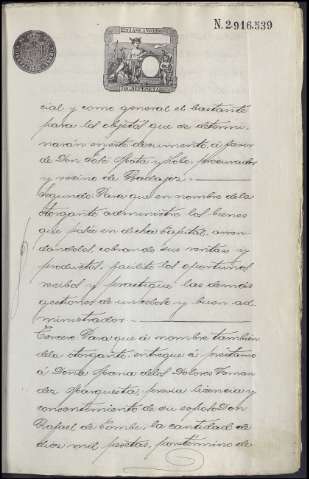 N. 2.916.539
cial y como general el bastante
para los objetos que se determi-
narán en este documento, á favor
de Don Soto Mata y Lobo, procurador
y vecino de Badajoz.
Segundo. Para que en nombre de la
otorgante administre los bienes
que posee en dicha Capital, arren-
dándolos, cobrando sus rentas y
productos, facilite los oportunos
recibos y practique las demás
gestiones de un celoso y buen ad-
ministrador.
Tercero. Para que á nombre también
de la otorgante, entregue á préstamo
á Doña Maria de los Dolores Fernan-
dez Marquesta, previa licencia y
consentimiento de su esposo Don
Rafael de Combe, la cantidad de
diez mil pesetas, por término de